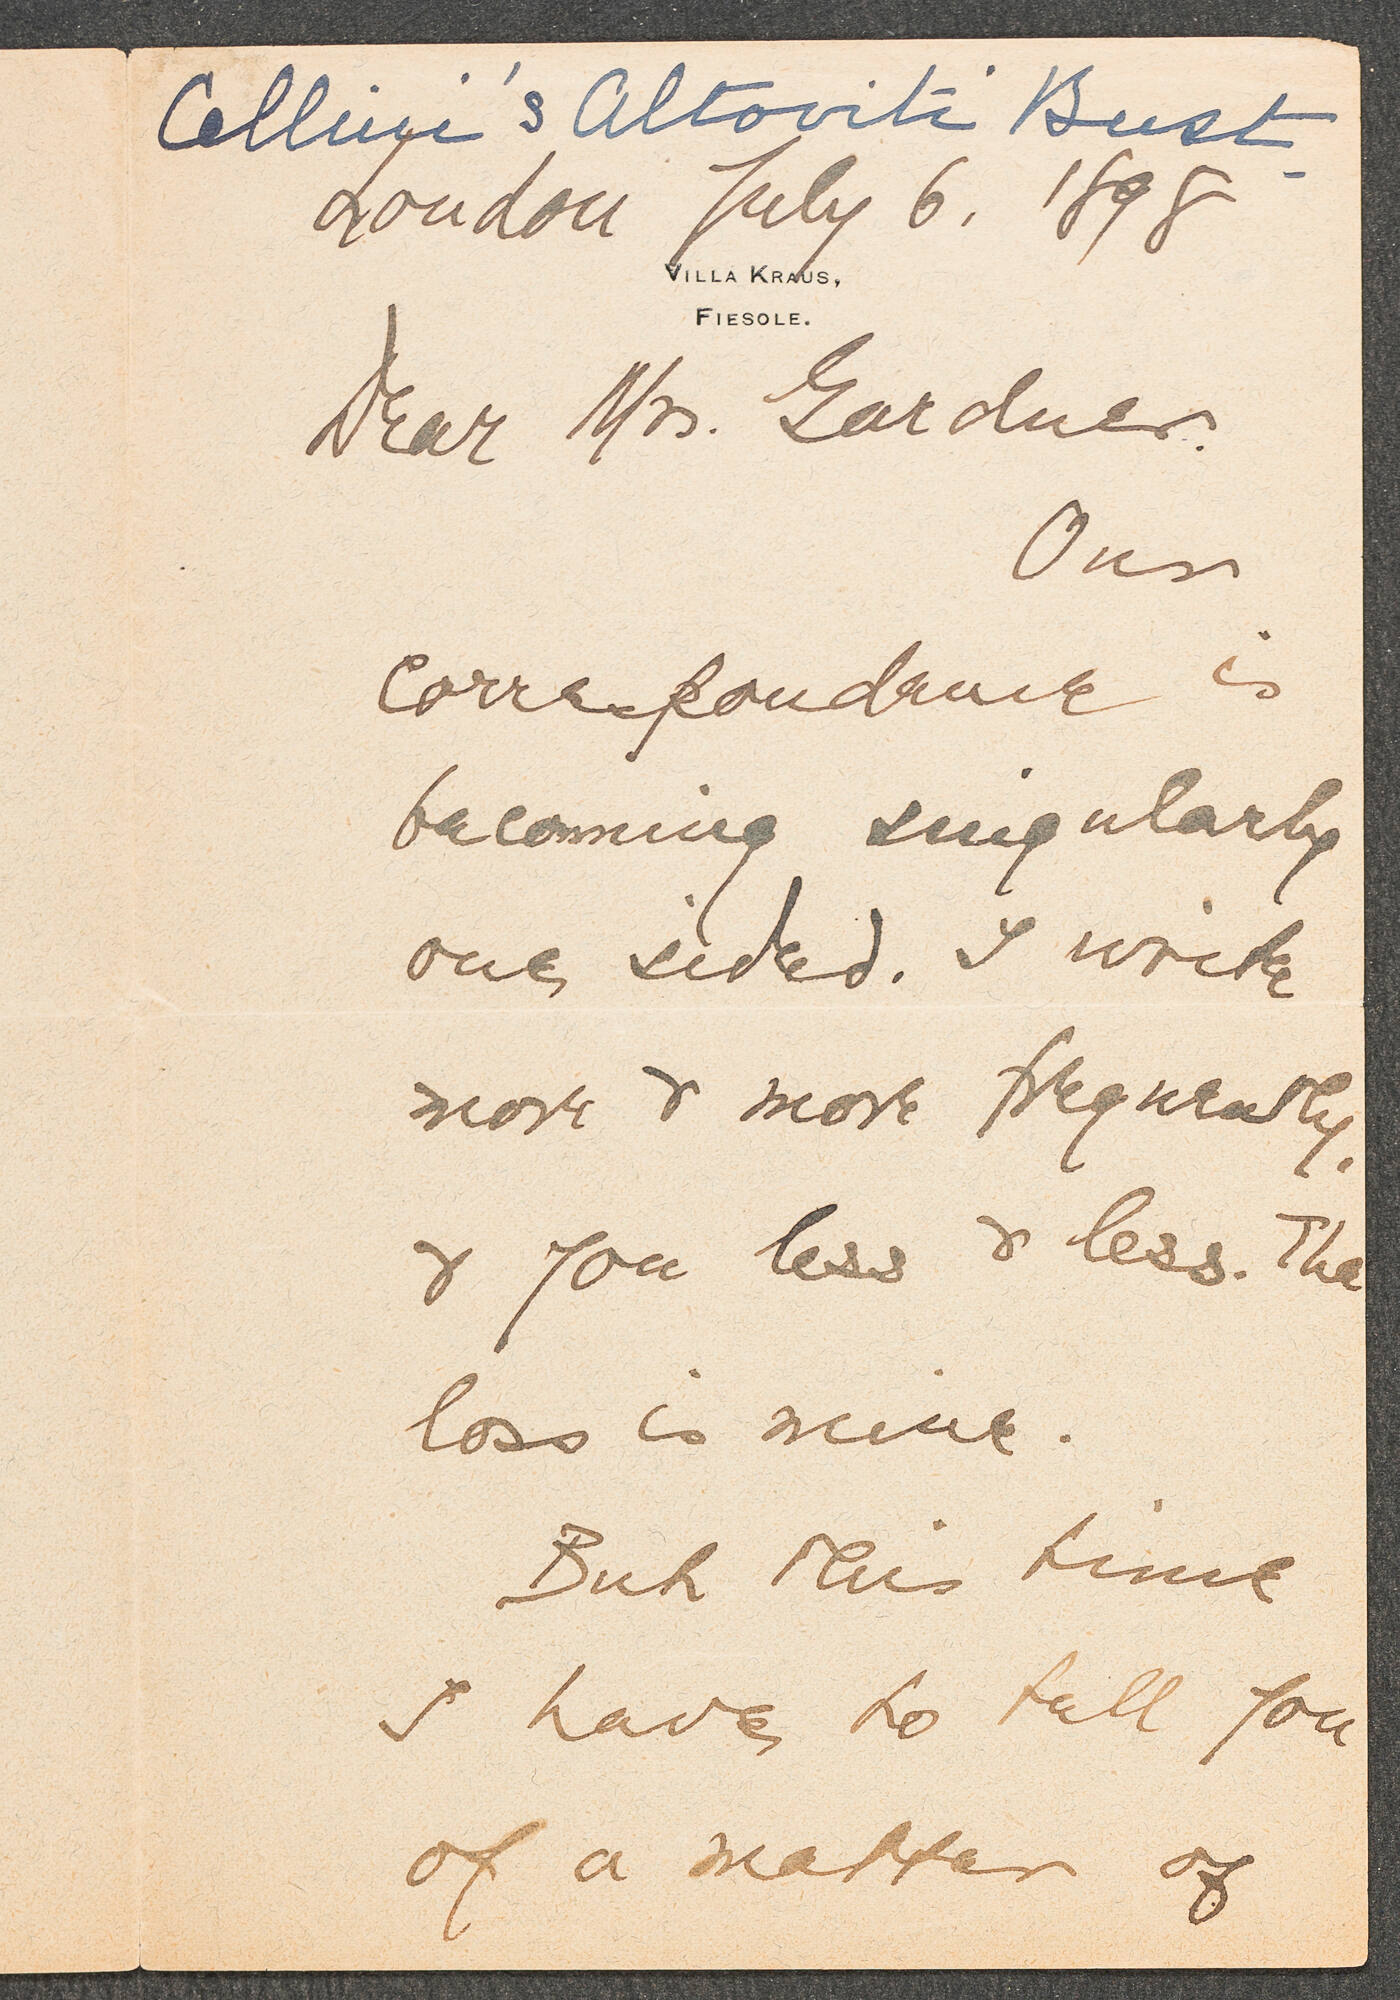 Cellini's Altoviti Bust -
London July 6, 1898
VILLA KRAUS,
FIESOLE.
Dear Mrs. Gardner.
Our
correspondence is
becoming singularly
one sided. I write
more & more frequently,
& you less & less. The
loss is mine.
But this time
I have to tell you
of a matter of